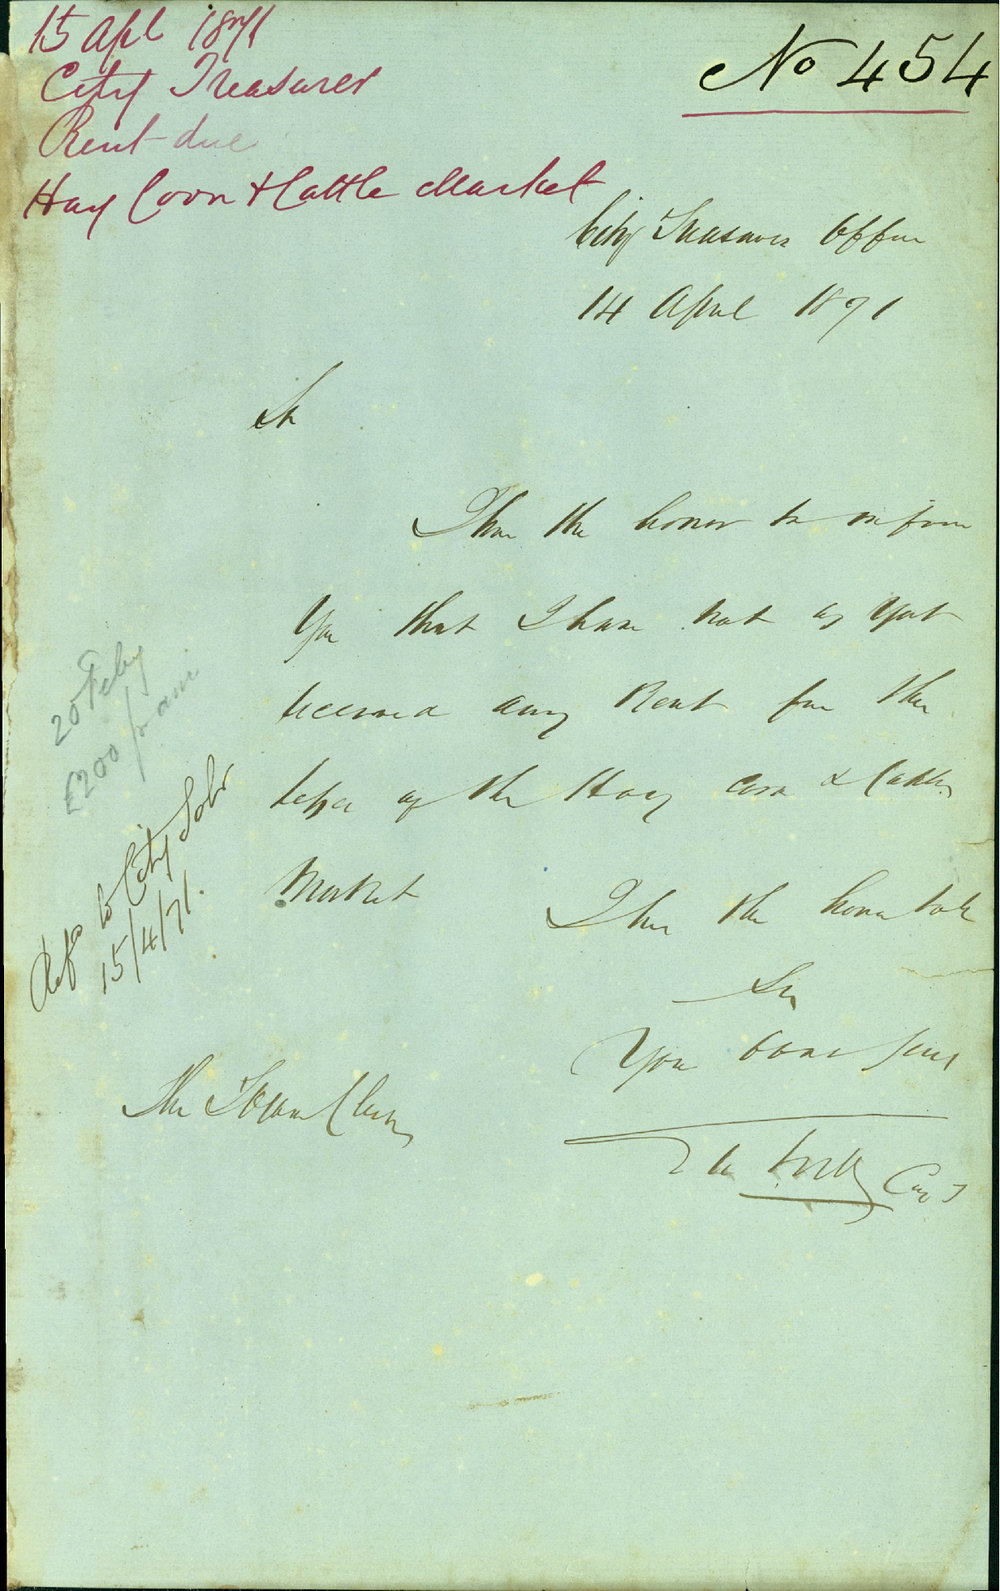 15 Apl 1871
City Treasurer
Rent due
Hay Corn & Cattle Market
No 454
City Treasurers Office
14 April 1871
Sir
I have the honor to inform
you that I have not as yet
received any Rent for the
lease of the Hay Corn & Cattle
Market
I have the honor to be
Sir
Your Obedt Servt
The Town Clerk
20 Feby
£200 pr ann
Refd to City Solr
15/4/71.